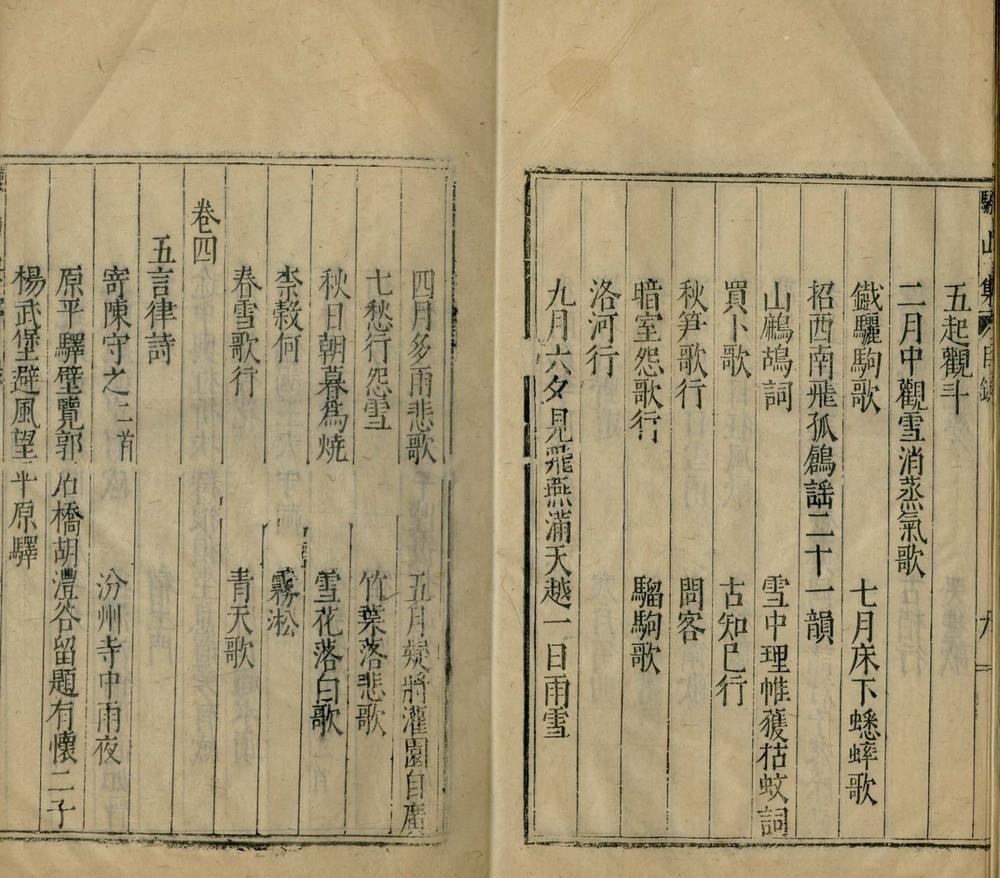 五起觀斗
二月中觀雪消蒸氣歌
鐵驪駒歌 七月床下蟋蟀歌
招西南飛孤鶬謡二十一韻
山鷓鴣詞 雪中理帷獲枯蚊詞
買卜歌 古知已行
秋笋歌行 問客
暗室怨歌行 騮駒歌
洛河行
九月六夕見飛燕滿天越一日雨雪
四月多雨悲歌 五月 將灌園自廣
七愁行怨雪 竹葉落悲歌
秋日朝暮爲燒 雪花落白歌
柰穀何 霧淞
春雪歌行 青天歌
卷四
五言律詩
寄陳守之二首 汾州寺中雨夜
原平驛壁覽郭石橋胡澧谷留題有懷二子
楊武堡避風望平原驛